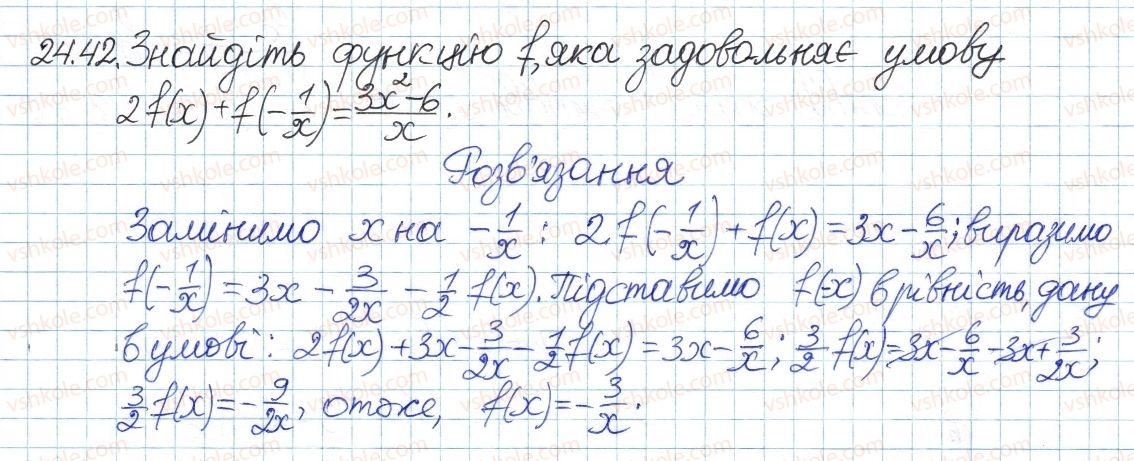 24.42. Знайдіть функцію f, яка задовольняє умову
2f(x)+f(-1/x)=(3x²-6)/x.
Розв'язання
Замінимо x на -1/x : 2f(-1/x)+f(x)=3x-6/x; виразимо
f(-1/x)=3x-3/2x-1/2 f(x). Підставимо f(-x) в рівність, дану
в умові: 2f(x)+3x-3/2x-1/2 f(x)=3x-6/x; 3/2 f(x)=3x-6/x-3x+3/2x;
3/2 f(x)=-9/2x, отже, f(x)=-3/x.